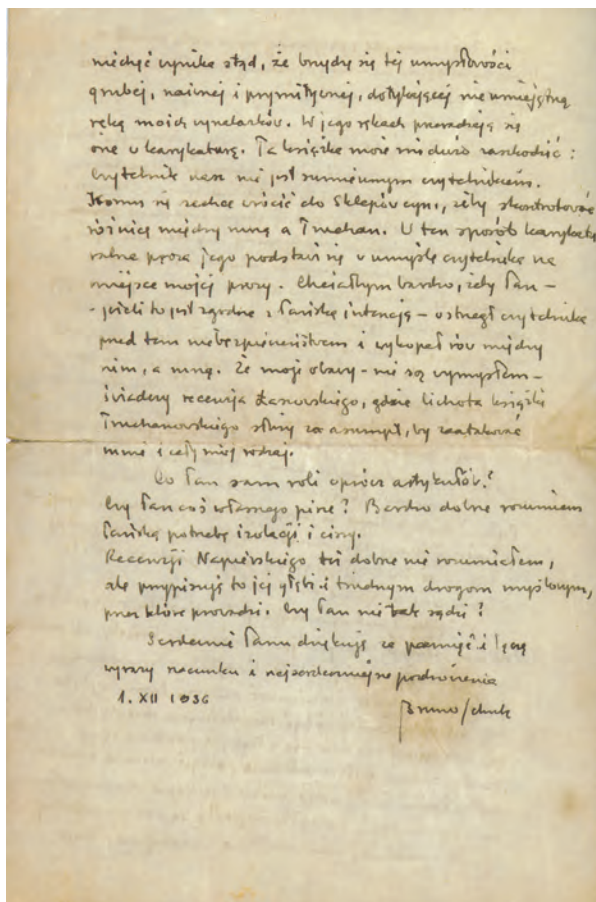 niechęć wynika stąd, że brzydzę się tej umysłowości
grubej, naiwnej i prymitywnej, dotykającej nieumiejętną
ręką moich wynalazków. W jego rękach przeradzają się
one w karykaturę. Ta książka może mi dużo zaszkodzić:
Czytelnik nasz nie jest sumiennym czytelnikiem.
Komu się zechce wrócić do Sklepów cyn., żeby skontrolować
różnicę między mną a Truchan. W ten sposób karykatu
ralna proza jego podstawi się w umyśle czytelnika na
miejsce mojej prozy. Chciałbym bardzo, żeby Pan –
– jeżeli to jest zgodne z Pańską intencją – ostrzegł czytelnika
przed tem niebezpieczeństwem i wykopał rów między
nim, a mną. Że moje obawy – nie są wymysłem –
świadczy recenzja Łaszowskiego, gdzie lichota książki
Truchanowskiego służy za asumpt, by zaatakować
mnie i cały mój rodzaj.
Co Pan sam robi oprócz artykułów?
Czy Pan coś własnego pisze? Bardzo dobrze rozumiem
Pańską potrzebę izolacji i ciszy.
Recenzji Napierskiego też dobrze nie rozumiałem,
ale przypisuję to jej głębi i trudnym drogom myślowym,
przez które prowadzi. Czy Pan nie tak sądzi?
Serdecznie Panu dziękuję za pamięć i łączę
wyrazy szacunku i najserdeczniejsze pozdrowienia
1. XII 1936
Bruno Schulz